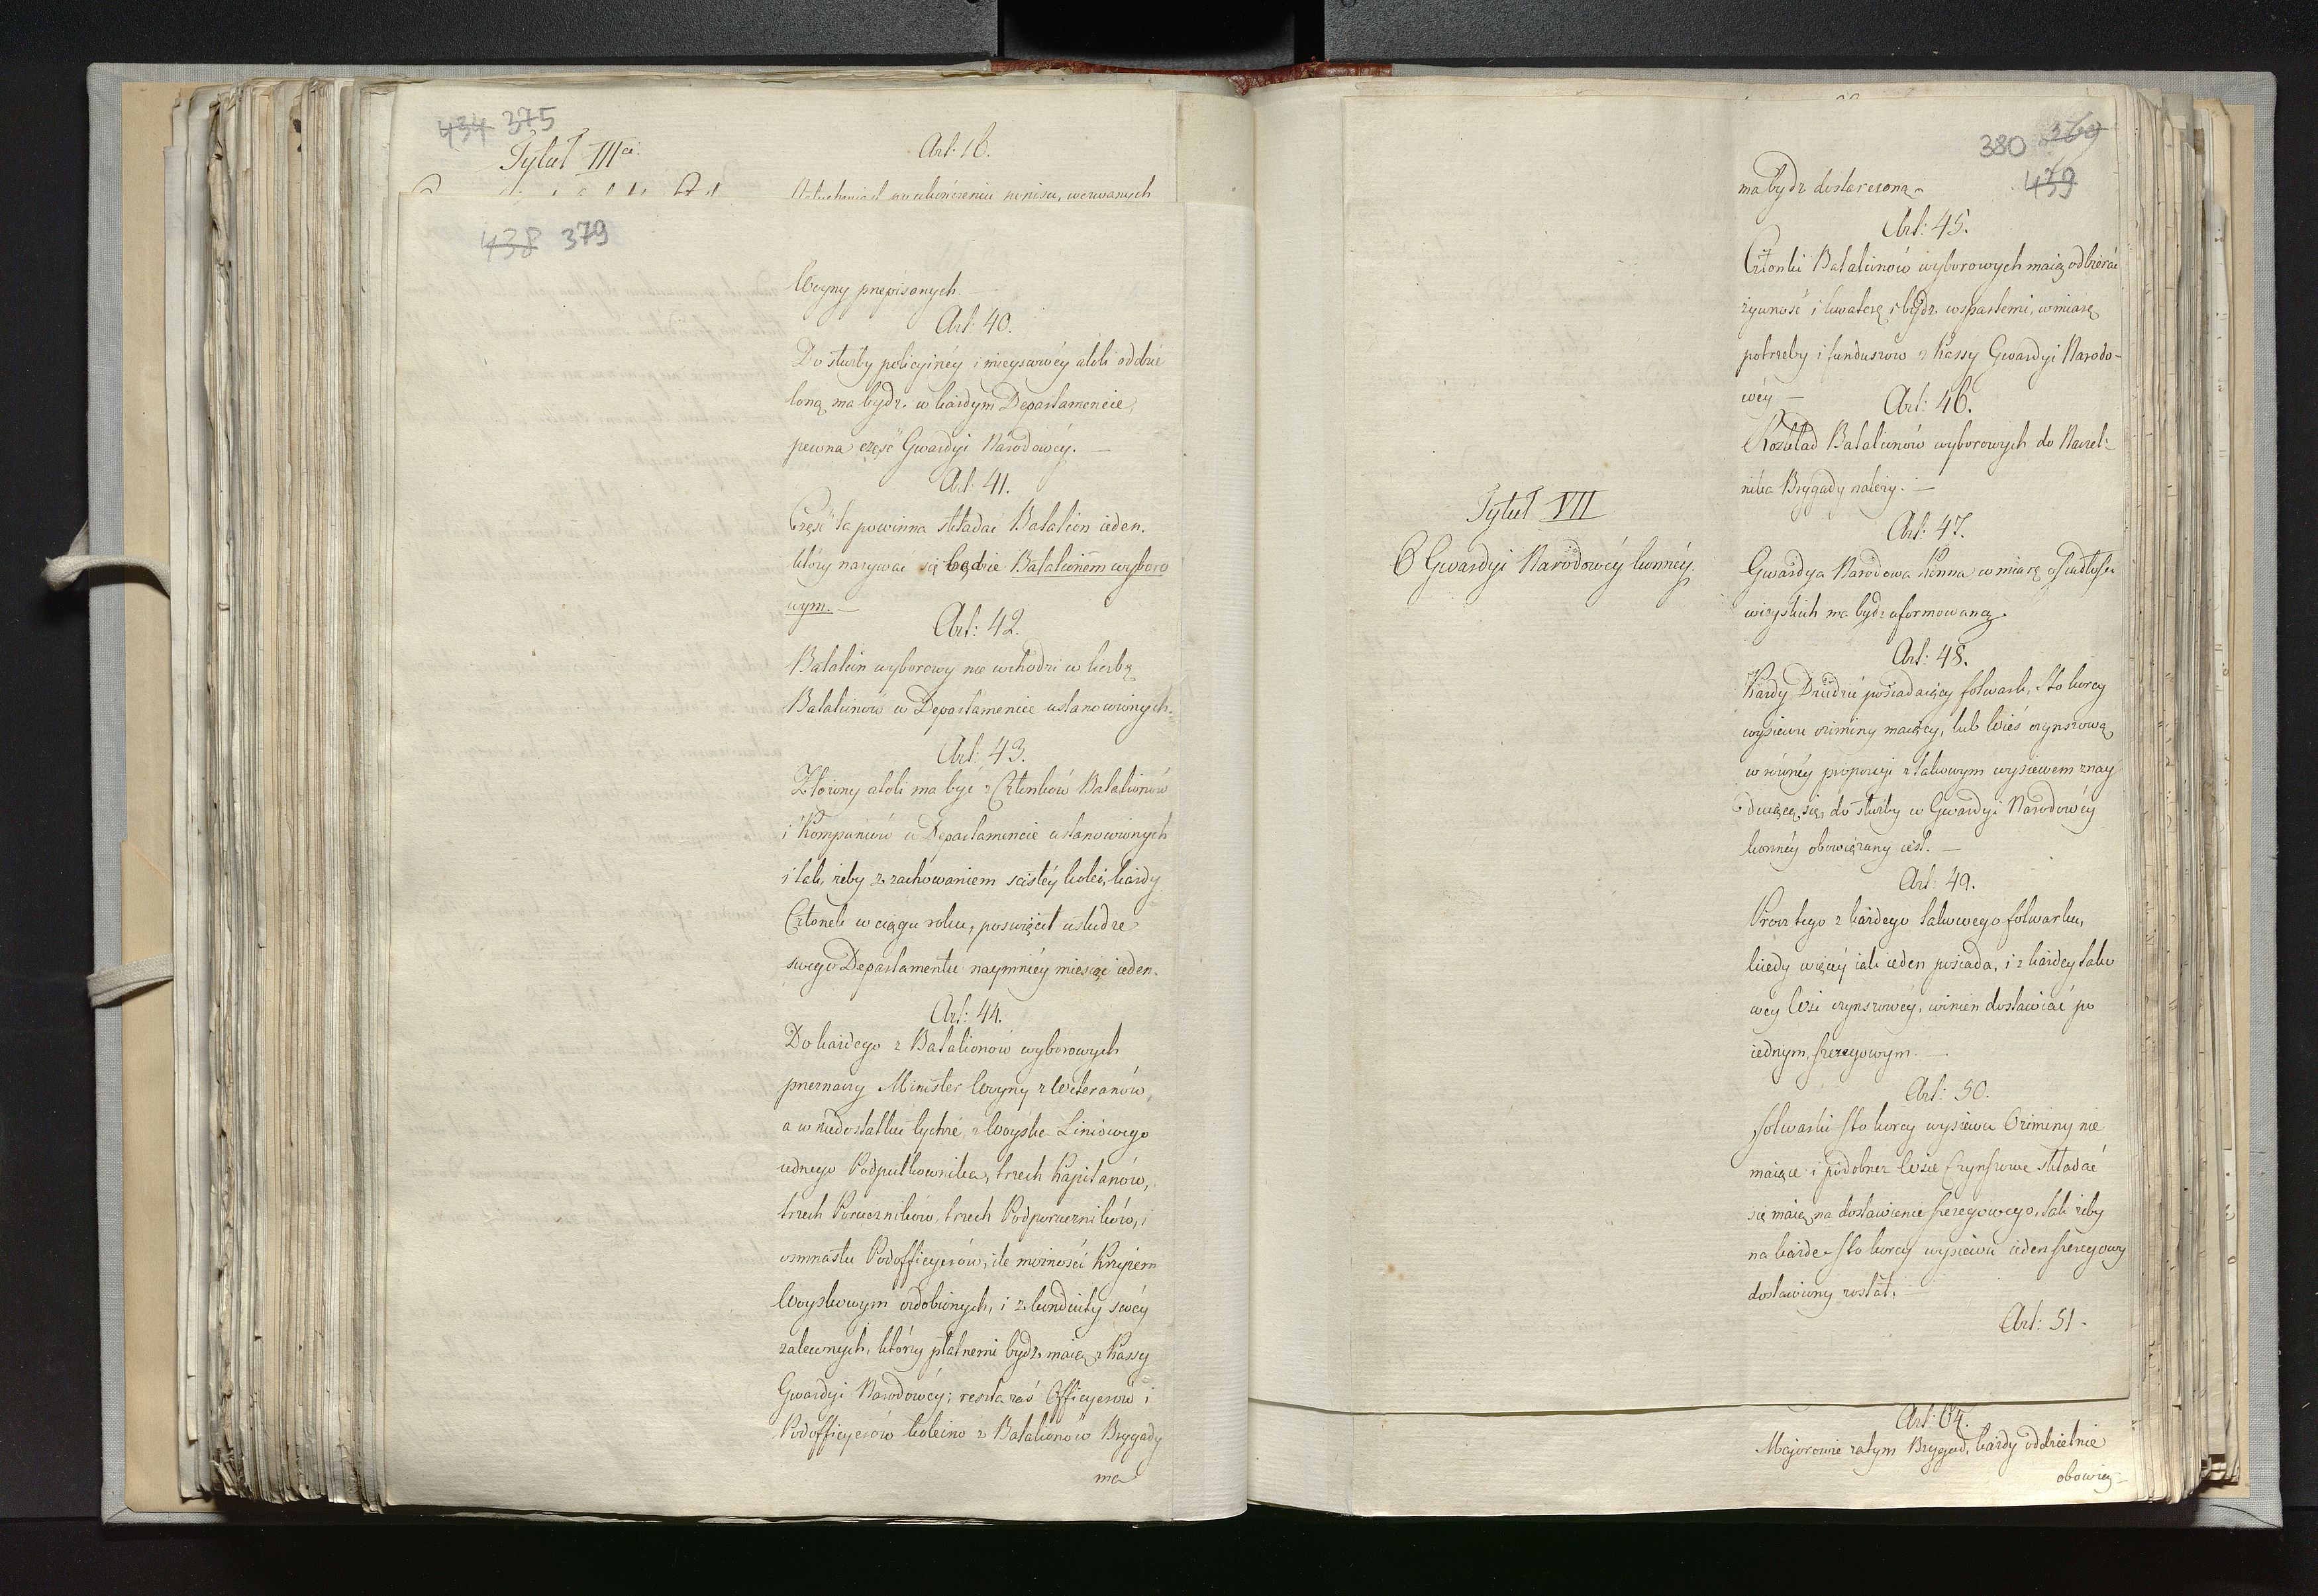 434 375
Tytuł IIIci.
Art. 16.
po ukończeniu popisu, wezwanych
438 379
Woyny przepisanych —
Art: 40.
Do służby policyinéy i mieyscowéy atoli oddzie
loną ma bydź w każdym Departamencie,
pewna część Gwardyi Narodowéy. —
Art: 41.
Część ta powinna składać Batalion ieden.
który nazywać się będzie Batalionem wyboro
wym. —
Art: 42.
Batalion wyborowy nie wchodzi w liczbę
Batalionów w Departamencie ustanowionych.
Art: 43.
Złożony atoli ma być z Członków Batalionów
i Kompaniów w Departamencie ustanowionych
i tak, żeby z zachowaniem scisłéy kolei, każdy
Członek w ciągu roku, poswięcił usłudze
swego Departamentu naymniéy miesiąc ieden.
Art: 44.
Do każdego z Batalionów wyborowych
przeznaczy Minister Woyny z Weteranów,
a w niedostatku tychże, z Woyska Liniowego
iednego Podpułkownika, trzech Kapitanów,
trzech Poruczników, trzech Podporuczników, i
osmnastu Podofficyerów, ile możności Krzyżem
Woyskowym ozdobionych, i z konduity swéy
zaleconych, którzy płatnemi bydź maią z Kassy
Gwardyi Narodowéy; reszta zaś Officyerów i
Podofficyerów koleino z Batalionów Brygady
ma
380 360
439
ma bydź dostarczoną —
Art: 45.
Członki Batalionów wyborowych maią odbierać
żywność i kwaterę i bydź wspartemi, w miarę
potrzeby i funduszow z Kassy Gwardyi Narodo-
wéy —
Art: 46.
Rozkład Batalionów wyborowych do Naczel-
nika Brygady należy. —
Tytuł VII
O Gwardyi Narodowéy konnéy.
Art: 47.
Gwardya Narodowa konna w miarę osiadłości
wieyskich ma bydź uformowaną.
Art: 48.
Każdy Dziedzic posiadaiący folwark, sto korcy
wysiewu oziminy maiący, lub Wieś czynszową
w równéy proporcyi z takowym wysiewem znay
duiącą się, do służby w Gwardyi Narodowéy
konnéy obowiązany iest. —
Art: 49.
Prócz tego z każdego takowego folwarku,
kiedy więcéy iak ieden posiada, i z każdey tako
wéy Wsi czynszowéy, winien dostawiać po
iednym szeregowym —
Art: 50.
folwarki sto korcy wysiewu Oziminy nie
maiące i podobnez Wsie Czynszowe składać
się maią na dostawienie szeregowego, tak żeby
na każde sto korcy wysiewu ieden szeregowy
dostawiony został. —
Art: 51 -
Art: 64.
Majorowie zatym Brygad, każdy oddzielnie
obowią-